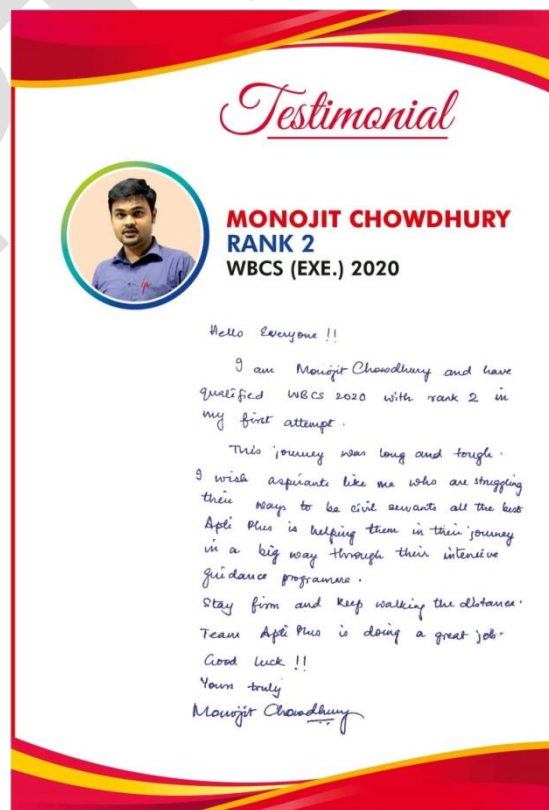 Testimonial
MONOJIT CHOWDHURY
RANK 2
WBCS (EXE.) 2020
Hello Everyone !!
I am Monojit Chowdhury and have
qualified WBCS 2020 with rank 2 in
my first attempt.
This journey was long and tough.
I wish aspirants like me who are struggling
their ways to be civil servants all the best
Apti Plus is helping them in their journey
in a big way through their intensive
guidance programme.
Stay firm and keep walking the distance.
Team Apti Plus is doing a great job.
Good Luck !!
Yours truly
Monojit Chowdhury